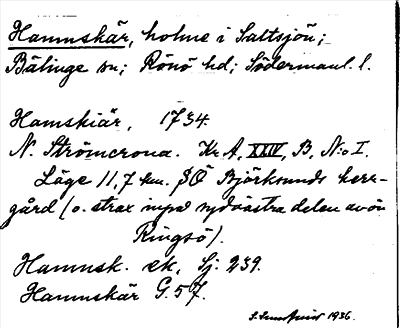 Hamnskär, holme i Saltsjön;
Bälinge sn; Rönö hd; Södermanl. l.
Hamskiär, 1734.
N. Strömcrona. Kr. A, XXIV, B, N:o I.
Läge 11,7 km. SÖ Björksunds herr-
gård (o. strax inpå sydvästra delen av ön
Ringsö).
Hamnsk. ek, Sj: 239.
Hamnskär G. 57.
1936.